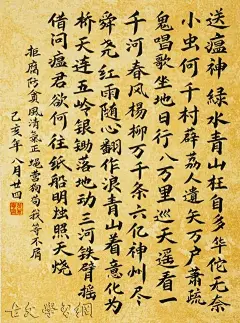 送瘟神綠水青山枉自多华佗无奈
小虫何千村薜荔人遺矢万户萧疏
鬼唱歌坐地日行八万里巡天遥看一
千河春风杨柳万千条六亿神州尽
舜尧红雨随心翻作浪青山着意化为
桥天连五岭银锄落地动三河铁臂摇
借问瘟君欲何往纸船明烛照天烧
拒腐防貪風清氣正蝇营狗苟我等不屑
己亥年八月廿四